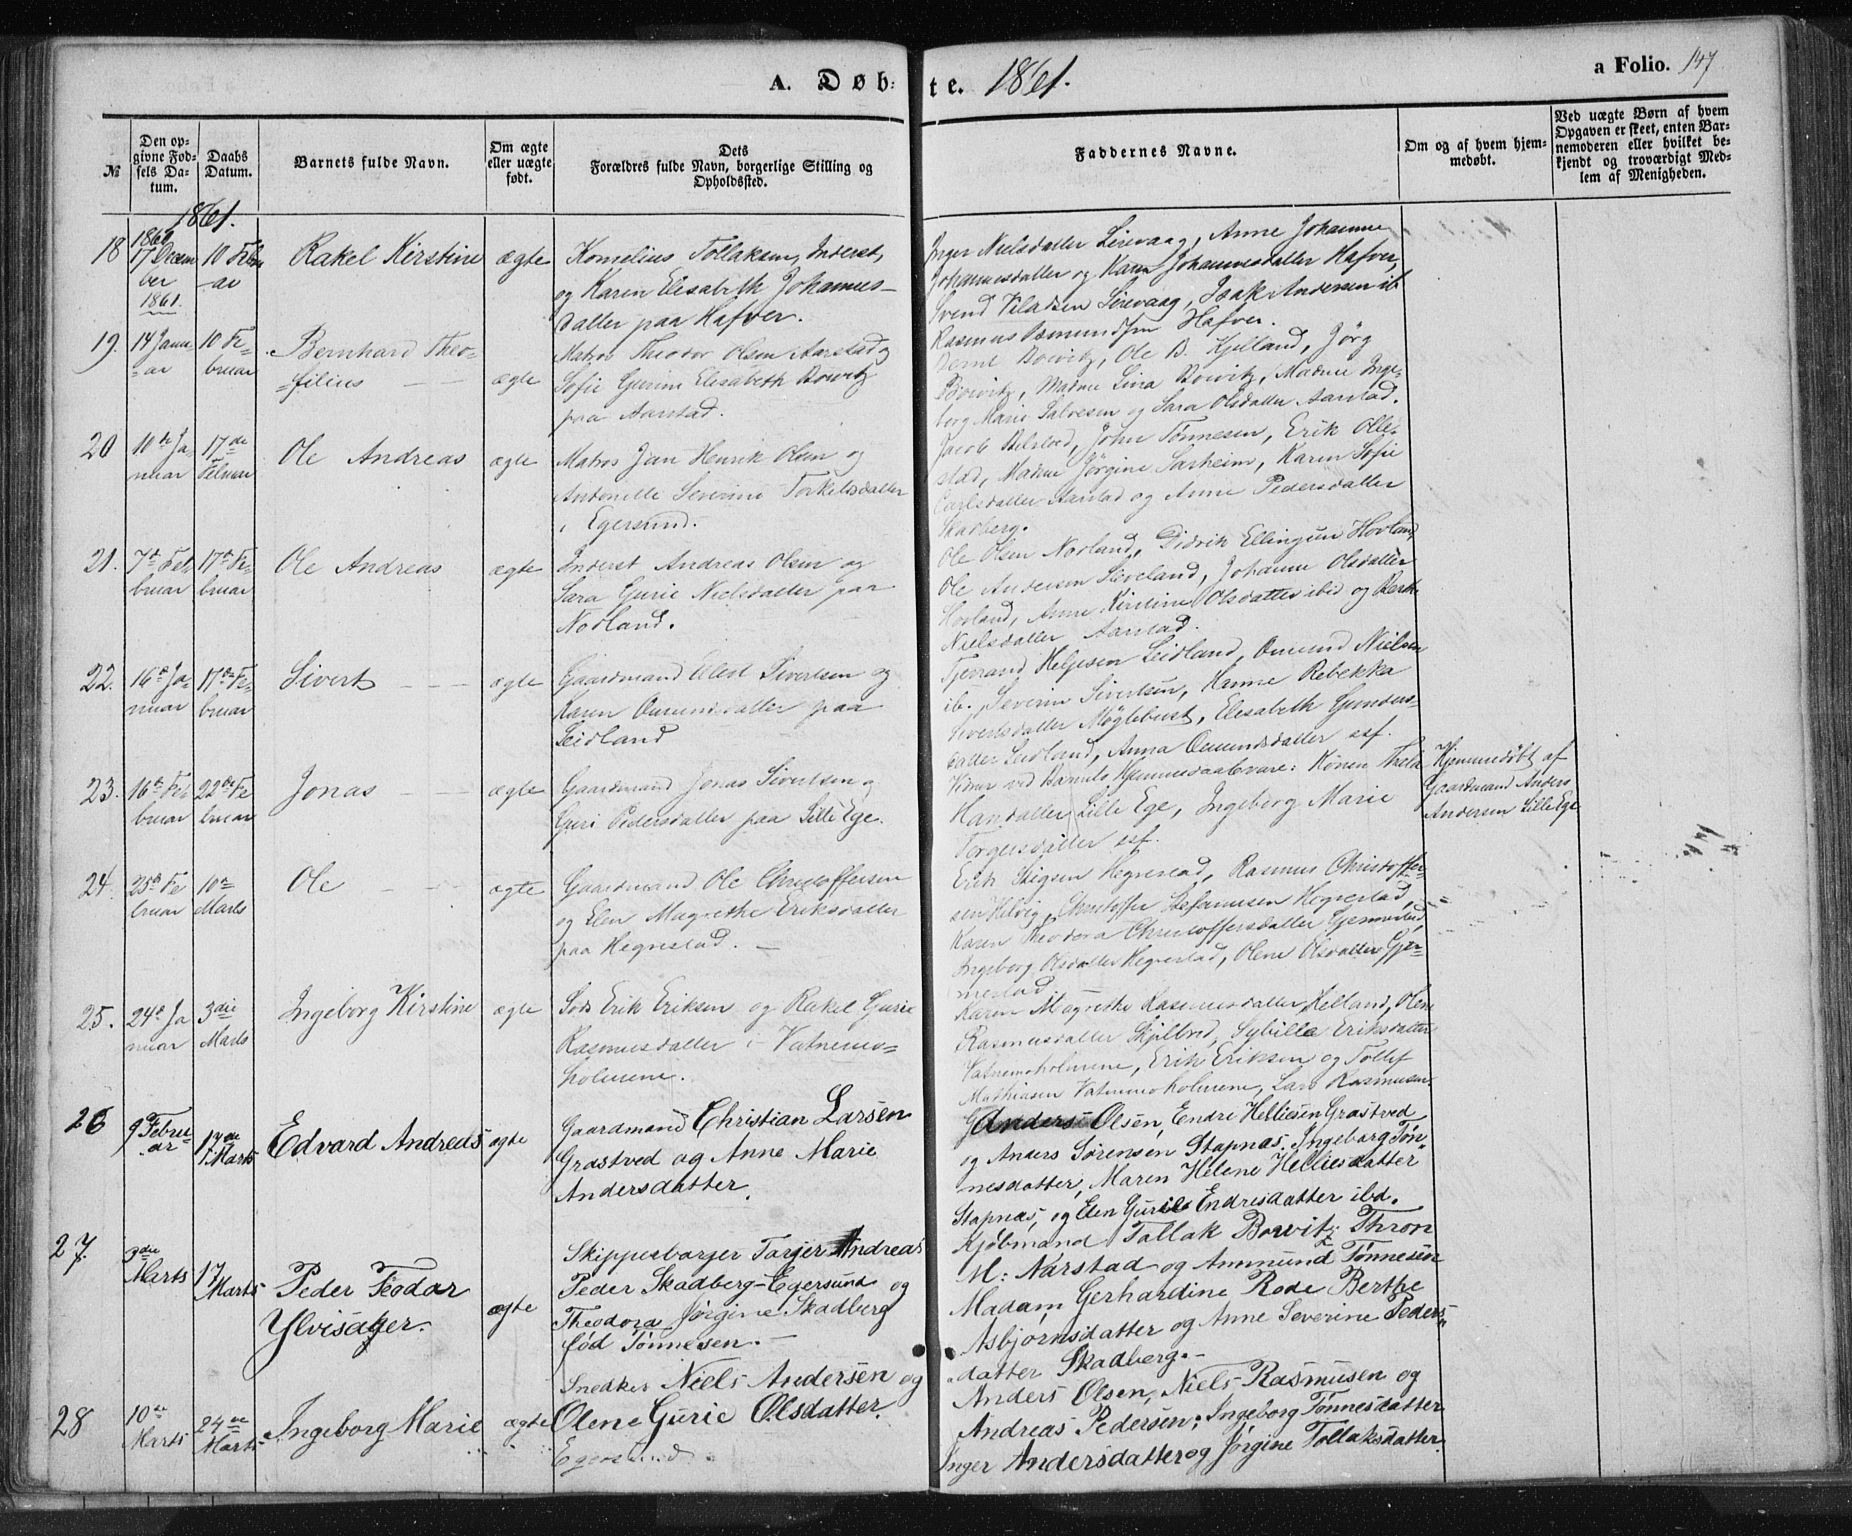 A. Døbte. 1861.
a Folio. 147
№
Den opgivne Fødsels Datum.
Daabs Datum.
Barnets fulde Navn.
Om ægte eller uægte født.
Dets Forældres fulde Navn, borgerlige Stilling og Opholdssted.
Faddernes Navne.
Om og af hvem hjemmedøbt.
Ved uægte Børn af hvem Opgaven er skeet, enten Barnemoderen eller hvilket bekjendt og troværdigt Medlem af Menigheden.
1861.
18
1860
17 Decem
ber
1861.
10 Febru
ar
Rakel Kirstine
ægte
Kornelius Tollaksen, Inderst,
og Karen Elisabeth Johannes-
datter paa Hafver.
Inger Nielsdatter Sirevaag, Anne Johanne
Johannesdatter og Karen Johannesdatter Hafver,
Svend Sirevaag, Isak Andersen ib
Rasmus Osmundsen Hafver.
19.
14 Janu
ar
10 Fe-
bruar
Bernhard Theo-
filius
ægte
Matros Theodor Olsen Aarstad og
Sofie Gurine Elisabeth Bowitz
paa Aarstad.
Bernt Bowitz, Ole B. Kjelland, Jørg
Bowitz, Madme Lina Bowitz, Madme Inge-
borg Marie Salvesen og Sara Olsdatter Aarstad.
20
10de Ja
nuar
17de
Februar
Ole Andreas
ægte
Matros Jan Henrik Olsen og
Andonette Severine Torkelsdatter
i Egersund.
Jacob John Tønnesen, Erik Olle-
stad, Madme Jørgine Saxheim, Karen Sofie
Carlsdatter Aarstad og Anne Pedersdatter
Skadberg.
21.
7de Feb
bruar
17de Fe-
bruar
Ole Andreas
ægte
Inderst Andreas Olsen og
Sara Gurie Nielsdatter paa
Nodland.
Ole Olsen Nodland, Didrik Ellingsen Hovland,
Ole Andersen Sieveland, Johanne Olsdatter
Hovland, Anne Kirstine Olsdatter ibid og Berthe
Nielsdatter Aarstad.
22.
16de Ja-
nuar
17de Fe-
bruar
Sivert
ægte
Gaardmand Sivertsen og
Karen Omundsdatter paa
Leidland
Tjerand Helgesen Leidland, Omund Nielsen
ib., Severin Sivertsen, Hanne Rebekka
Sivertsdatter Møglebust, Elisabeth Gunders-
datter Leidland, Anna Omundsdatter esf.
23.
16de Fe
bruar
22de Fe
bruar
Jonas
ægte
Gaardmand Jonas Sivertsen og
Guri Pedersdatter paa Lille Ege.
Vidner ved Barnets Hjemmedaab vare: Konen
Hansdatter Lille Ege, Ingeborg Marie
Torgersdatter esf.
Hjemmedøbt af
Gaardmand Anders
Andersen Lille Ege
24.
25de Fe
bruar
10de
Marts
Ole
ægte
Gaardmand Ole Christoffersen
og Elen Magrethe Eriksdatter
paa Hegrestad.
Erik Stigsen Hegrestad, Rasmus Christoffer-
sen Hetvig, Christoffer Stefansen Hegrestad,
Karen Theodora Christoffersdatter Gjermestad,
Ingeborg Olsdatter Hegrestad, Olene Olsdatter Gjer-
mestad
25.
24de Ja
nuar
3die
Marts
Ingeborg Kirstine
ægte
Erik Eriksen og Rakel Gurie
Rasmusdatter i Vatnemo-
holmene.
Karen Magrethe Rasmusdatter Helland, Olene
Rasmusdatter Skjelbred, Sybille Eriksdatter
Vatnemoholmene, Erik Eriksen og Tollef
Mathiasen Vatnemoholmene, Lars Rasmusen
26
9 Febru-
ar
17de
Marts
Edvard Andreas
ægte
Gaardmand Christian Larsen
Grøstved og Anne Marie
Andersdatter.
Anders Olsen, Endre Helliesen Grøstved
og Anders Sørensen Stapnæs, Ingeborg Tøn-
nesdatter, Maren Helene Helliesdatter
Stapnæs, og Elen Gurie Endresdatter ibd.
27.
3die
Marts
17
Marts
Peder Feodor
Ylvisager.
ægte
Skippesborger Targer Andreas
Peder Skadberg-Egersund og
Theodora Jørgine Skadberg
fød Tønnesen.-
Kjøbmand Tollak Bowitz, Thron
M: Nærstad og Ammund Tønnesen
Madam Gerhardine Rode Berthe
Asbjørnsdatter og Anne Severine Peders-
datter Skadberg.-
28
10de
Marts
24de
Marts
Ingeborg Marie
ægte
Snedker Niels Andersen og
Olene Gurie Olsdatter.
Egersund.
Anders Olsen, Niels Rasmusen og
Andreas Pedersen; Ingeborg Tønnesdatter
Inger Andersdatter og Jørgine Tollaksdatter.